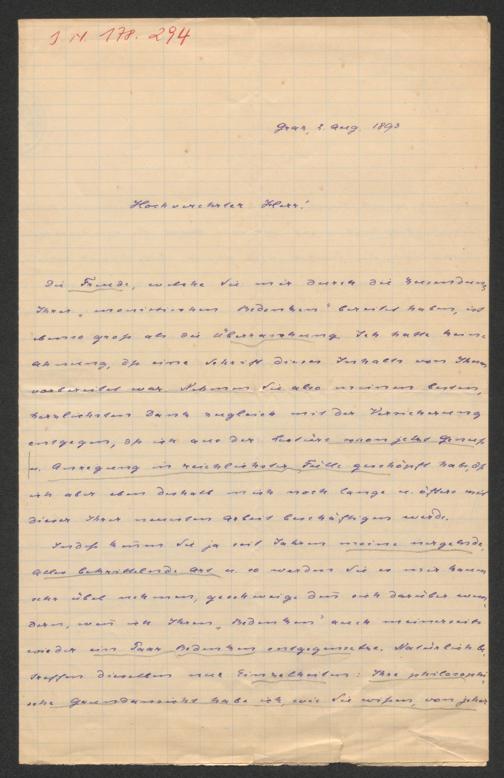 I. N. 178.294
Graz, 2. Aug. 1893
Hochverehrter Herr!
Die Freude, welche Sie mir durch die Zusendung
Ihrer „monistischen Bedenken" bereitet haben, ist
ebenso groß als die Überraschung. Ich hatte keine
Ahnung, dß eine Schrift dieses Inhalts von Ihnen
vorbereitet war. Nehmen Sie also meinen besten,
herzlichsten Dank zugleich mit der Versicherung
entgegen, dß ich aus der Lectüre schon jetzt Genuß
u. Anregung in reichlichster Fülle geschöpft habe, dß
ich aber eben deshalb mich noch lange u. öfters mit
dieser Ihrer neuesten Arbeit beschäftigen werde.
Indeß kennen Sie ja seit Jahren meine nergelnde,
Alles bekrittelnde Art u. so werden Sie es mir kaum
sehr übel nehmen, geschweige denn sich darüber wun-
dern, wenn ich Ihren „Bedenken" auch meinerseits
wieder ein Paar Bedenken entgegensetze. Natürlich be-
treffen dieselben nur Einzelheiten: Ihre philosophi-
sche Grundansicht habe ich, wie Sie wißen, von jeher